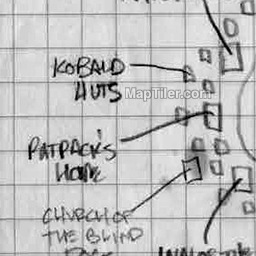 KOBALD
HUTS
MapTiler.com
PATPACK'S
HOME
CHURCH OF
THE BLIND